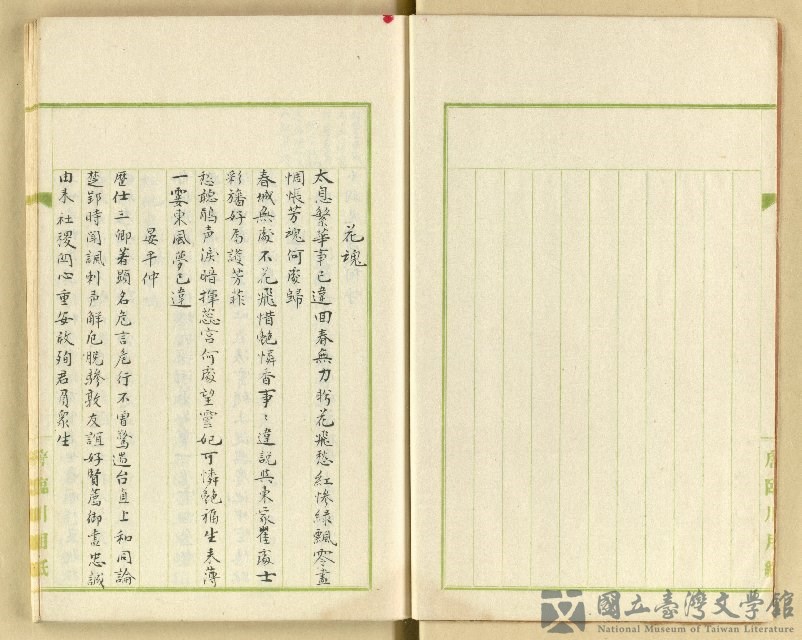 花魂
太息繁華事已違回春無力於花飛愁紅慘綠飄零盡
惆悵芳魂何處歸
春城無處不花飛惜艷憐香事〻違說與東家崔處士
彩旛好為護芳菲
愁聽鵑声淚暗揮蕊宮何處望靈妃可憐艷福生來薄
一霎東風夢已違
晏平仲
歷仕三卿著顯名危言危行不曾驚遄台直上和同論
楚郢時聞諷刺声解厄脫驂敦友誼好賢薦御盡忠誠
由来社稷関心重安敢殉君屑眾生
唐臨川用紙
國立臺灣文學館
National Museum of Taiwan Literature